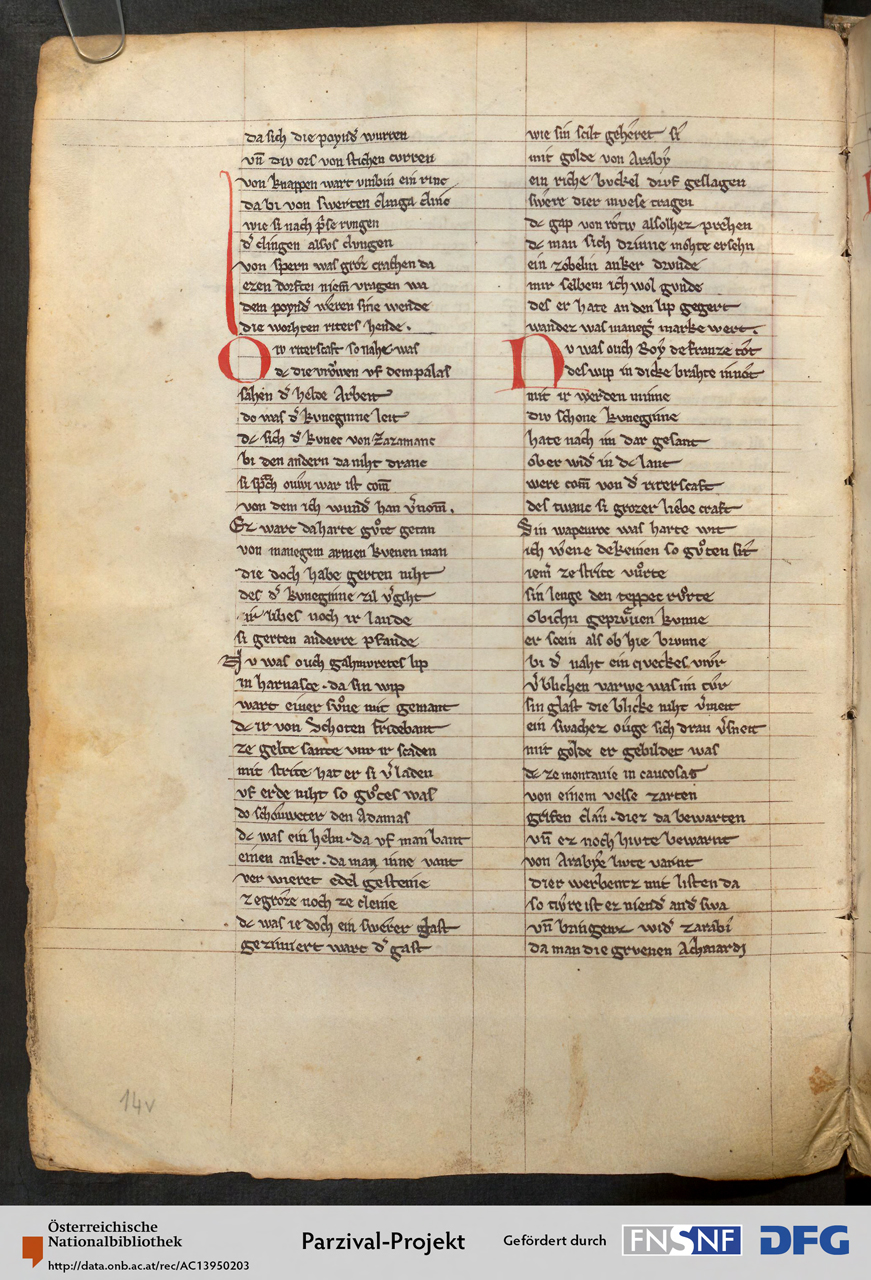 da sich die poynd᷑ wurren
vn̄ div ors von stichen curren
von knappen wart vmbin ein rinc
da bi von swerten clinga clinc
wie si nach p᷑se rvngen
d᷑ clingen alsvs clvngen
von spern was groz crachen da
ezen dorftei niem̄ vragen wa
dem poynd᷑ weren sine wende
die worhten riters hende.
Ow riterscaft so nahe was
dc die vrowen vf dem palas
sahen d᷑ helde Arbeit
do was d᷑ kvneginne leit
dc sich d᷑ kvnec von Zazamanc
bi den andern da niht dranc
si sp᷑ch ouwi war ist com̄
von dem ich wund᷑ han v᷑nom̄.
Ez wart da harte gvͦte getan
von manegem armen kvenen man
die doch habe gerten niht
des d᷑ kvneginne zil v᷑giht
ir libes noch ir lande
si gerten anderre pfande
Nv was ouch gahmvretes lip
in harnasce . da sin wip
wart einer svͦne mit gemant
dc ir von Schoten fridebant
ze gelte sante vnr ir scaden
mit strite hat er si v᷑laden
vf erde niht so gvͦtes was
do schouweter den Adamas
dc was ein helm . da vf man bant
einen anker . da man inne vant
ver wieret edel gesteine
ze groze noch ze cleine
dc was ie doch ein swerer glast
gezimiert wart d᷑ gast
wie sin scilt geheret si
mit golde von Araby
ein riche bvckel drvf geslagen
swere dier mvese tragen
dc gap von rotw alsolhez prehen
dc man sich drinne mohte ersehn
ein zobelin anker drvnde
mir selbem ich wol gvnde
des er hate an den lip gegert
wandez was maneg᷑ marke wert.
Nv was ouch Roy de franze tot
des wip in dicke brahte in not
mit ir werden minne
div schone kvneginne
hate nach im dar gesant
ober wid᷑ in dc lant
were com̄ von d᷑ riterscaft
des twanc si grozer liebe craft
Sin wapenroc was harte wit
ich wene dekeinen so gvͦten sit
iem᷑ ze strite vuͦrte
sin lenge den teppet rvͦrte
obichn geprvͤven kvnne
er scein als ob hie brvnne
bi d᷑ naht ein qveckes vivr
v᷑blichen varwe was im tivr
sin glast die blicke niht v᷑meit
ein swachez ouge sich dran v᷑sneit
mit golde er gebildet was
dc ze montanie in caucosas
von einem velse zarten
grifen clan . diez da bewarten
vn̄ ez noch hivte bewarnt
von Arabye livte varnt
dier werbentz mit listen da
so tivre ist ez niend᷑ and᷑ swa
vn̄ bringenz wid᷑ zarabi
da man die grvenen Achmardi
14v
Österreichische
Nationalbibliothek
http://data.onb.ac.at/rec/AC13950203
Parzival-Projekt
Gefördert durch
FNSNF
DFG